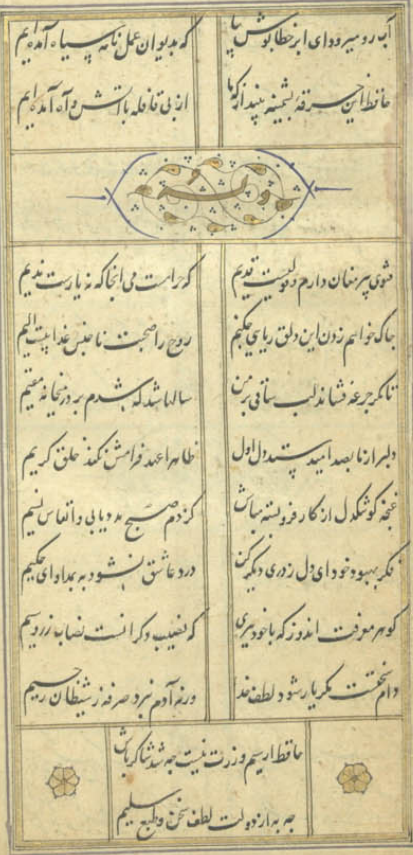 آب رو میرود ای ابر خطاپوش بیا
که بدیوان عمل نامه سیاه آمده‌ایم
حافظ این خرقه پشمینه بینداز که ما
از پی قافله با آتش و آه آمده‌ایم
وله
فتوی پیر مغان دارم و قولیست قدیم
که حرامست می انجا که نه یارست ندیم
چاک خواهم زدن این دلق ریایی چکنم
روح را صحبت ناجنس عذابیست الیم
تا مگر جرعه فشاند لب ساقی بر من
سالها شد که شدم بر در میخانه مقیم
دلبر از ما بصد امید ستد دل اول
ظاهرا عهد فرامش نکند خلق کریم
غنچه کو تنکدل از کار فروبسته مباش
کز دم صبح مدد یابی و انفاس نسیم
فکر بهبود خود ای دل ز دری دیکر کن
درد عاشق نشود به بمداوای حکیم
کوهر معرفت اندوز که با خود ببری
که نصیب دکرانست نصاب زر و سیم
دام سختست مکر یار شود لطف خدا
ورنه آدم نبرد صرفه ز شیطان رجیم
حافظ ار سیم و زرت نیست چه شد شاکر باش
چه به از دولت لطف سخن و طبع سلیم